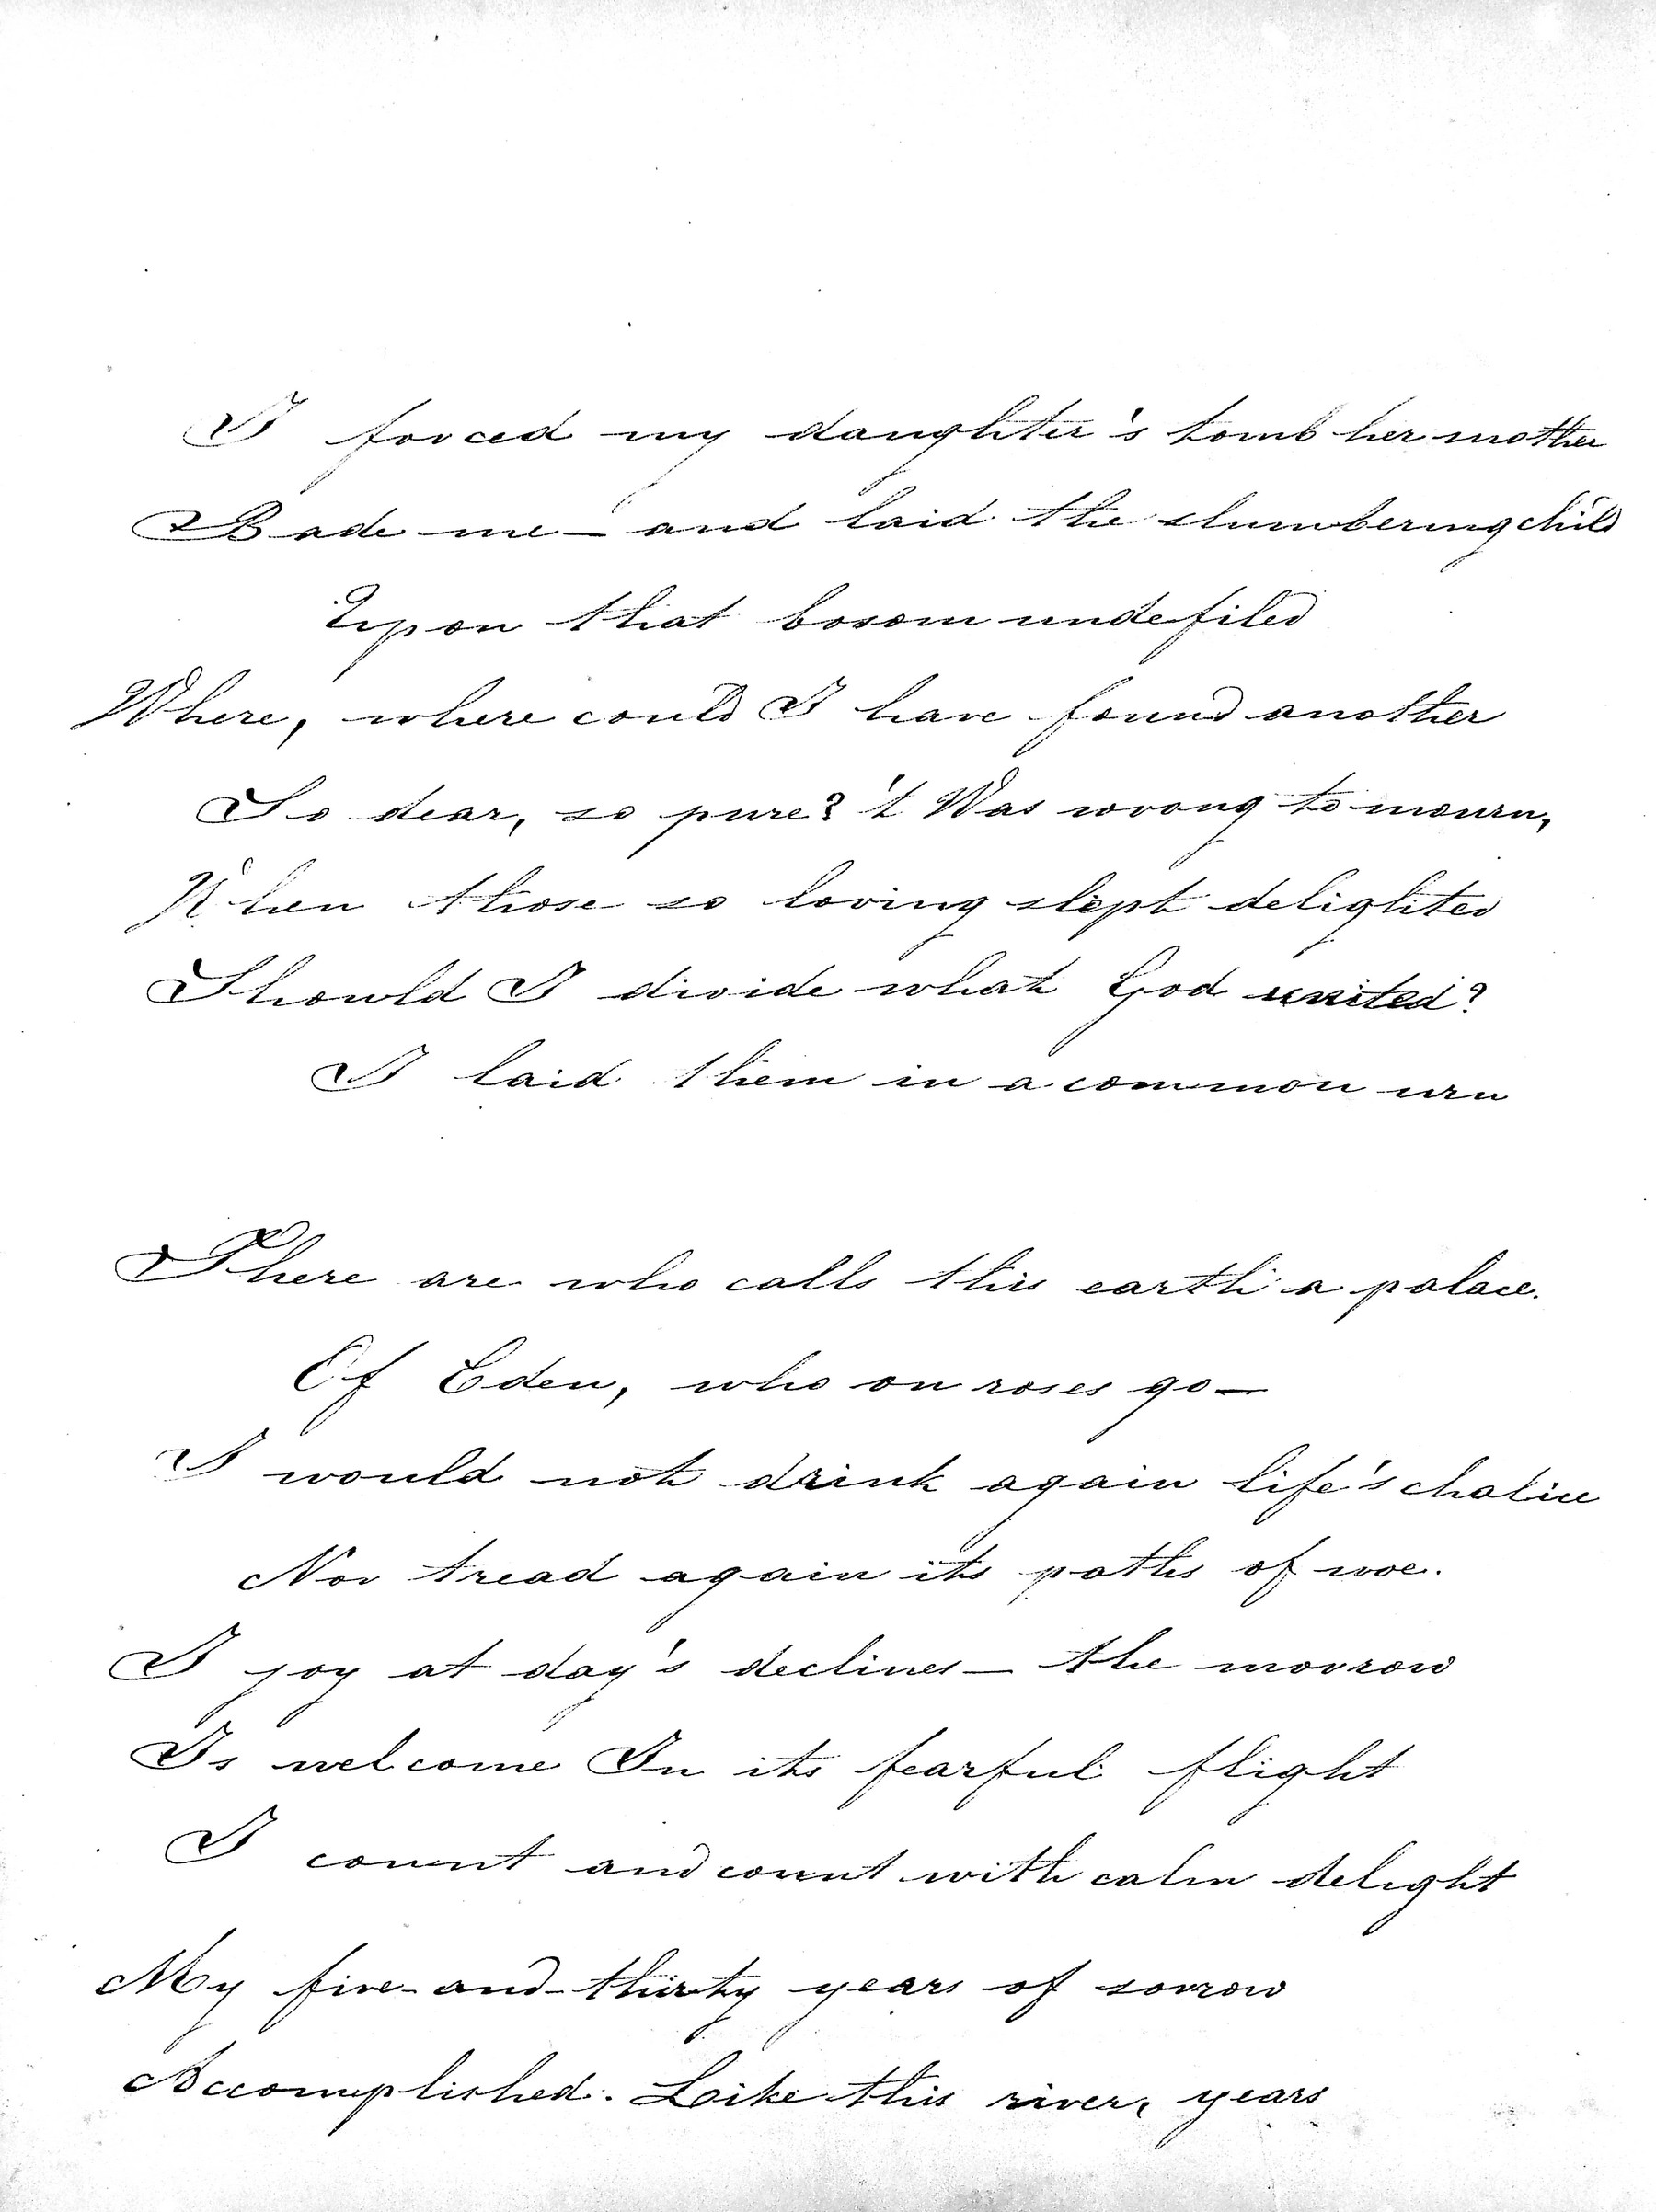 I forced my daughter's tomb her mother
Bade me — and laid the slumbering child
Upon that bosom undefiled
Where, where could I have found another
So dear, so pure? 't Was wrong to mourn,
When those so loving slept delighted
Should I divide what God united?
I laid them in a common urn
There are who calls this earth a palace.
Of Eden, who on roses go —
I would not drink again life's chalice
Nor tread again its paths of woe.
I joy at day's declines — the morrow
Is welcome In its fearful flight
I count and count with calm delight
My five-and-thirty years of sorrow
Accomplished. Like this river, years